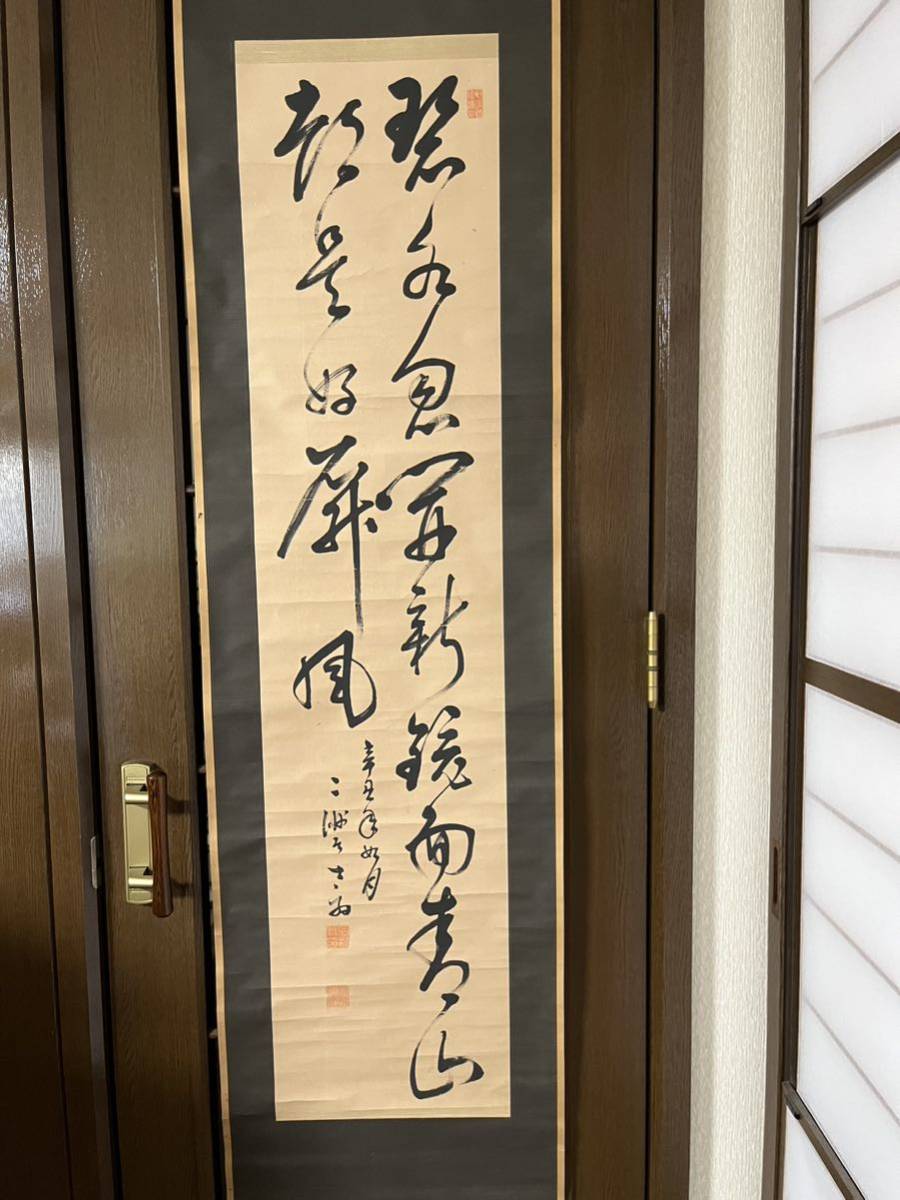 碧水忽開新鏡面青山
都是好屏風
辛丑年如月